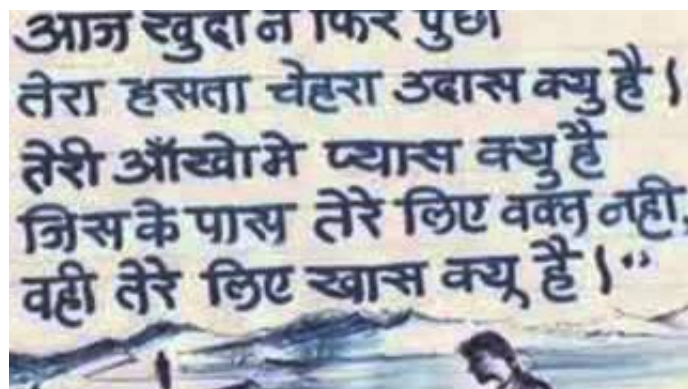 आज खुदा ने फिर पुछा
तेरा हसता चेहरा उदास क्यु है।
तेरी आँखोमे प्यास क्यु है
जिसके पास तेरे लिए वक्त नही,
वही तेरे लिए खास क्यू है।"